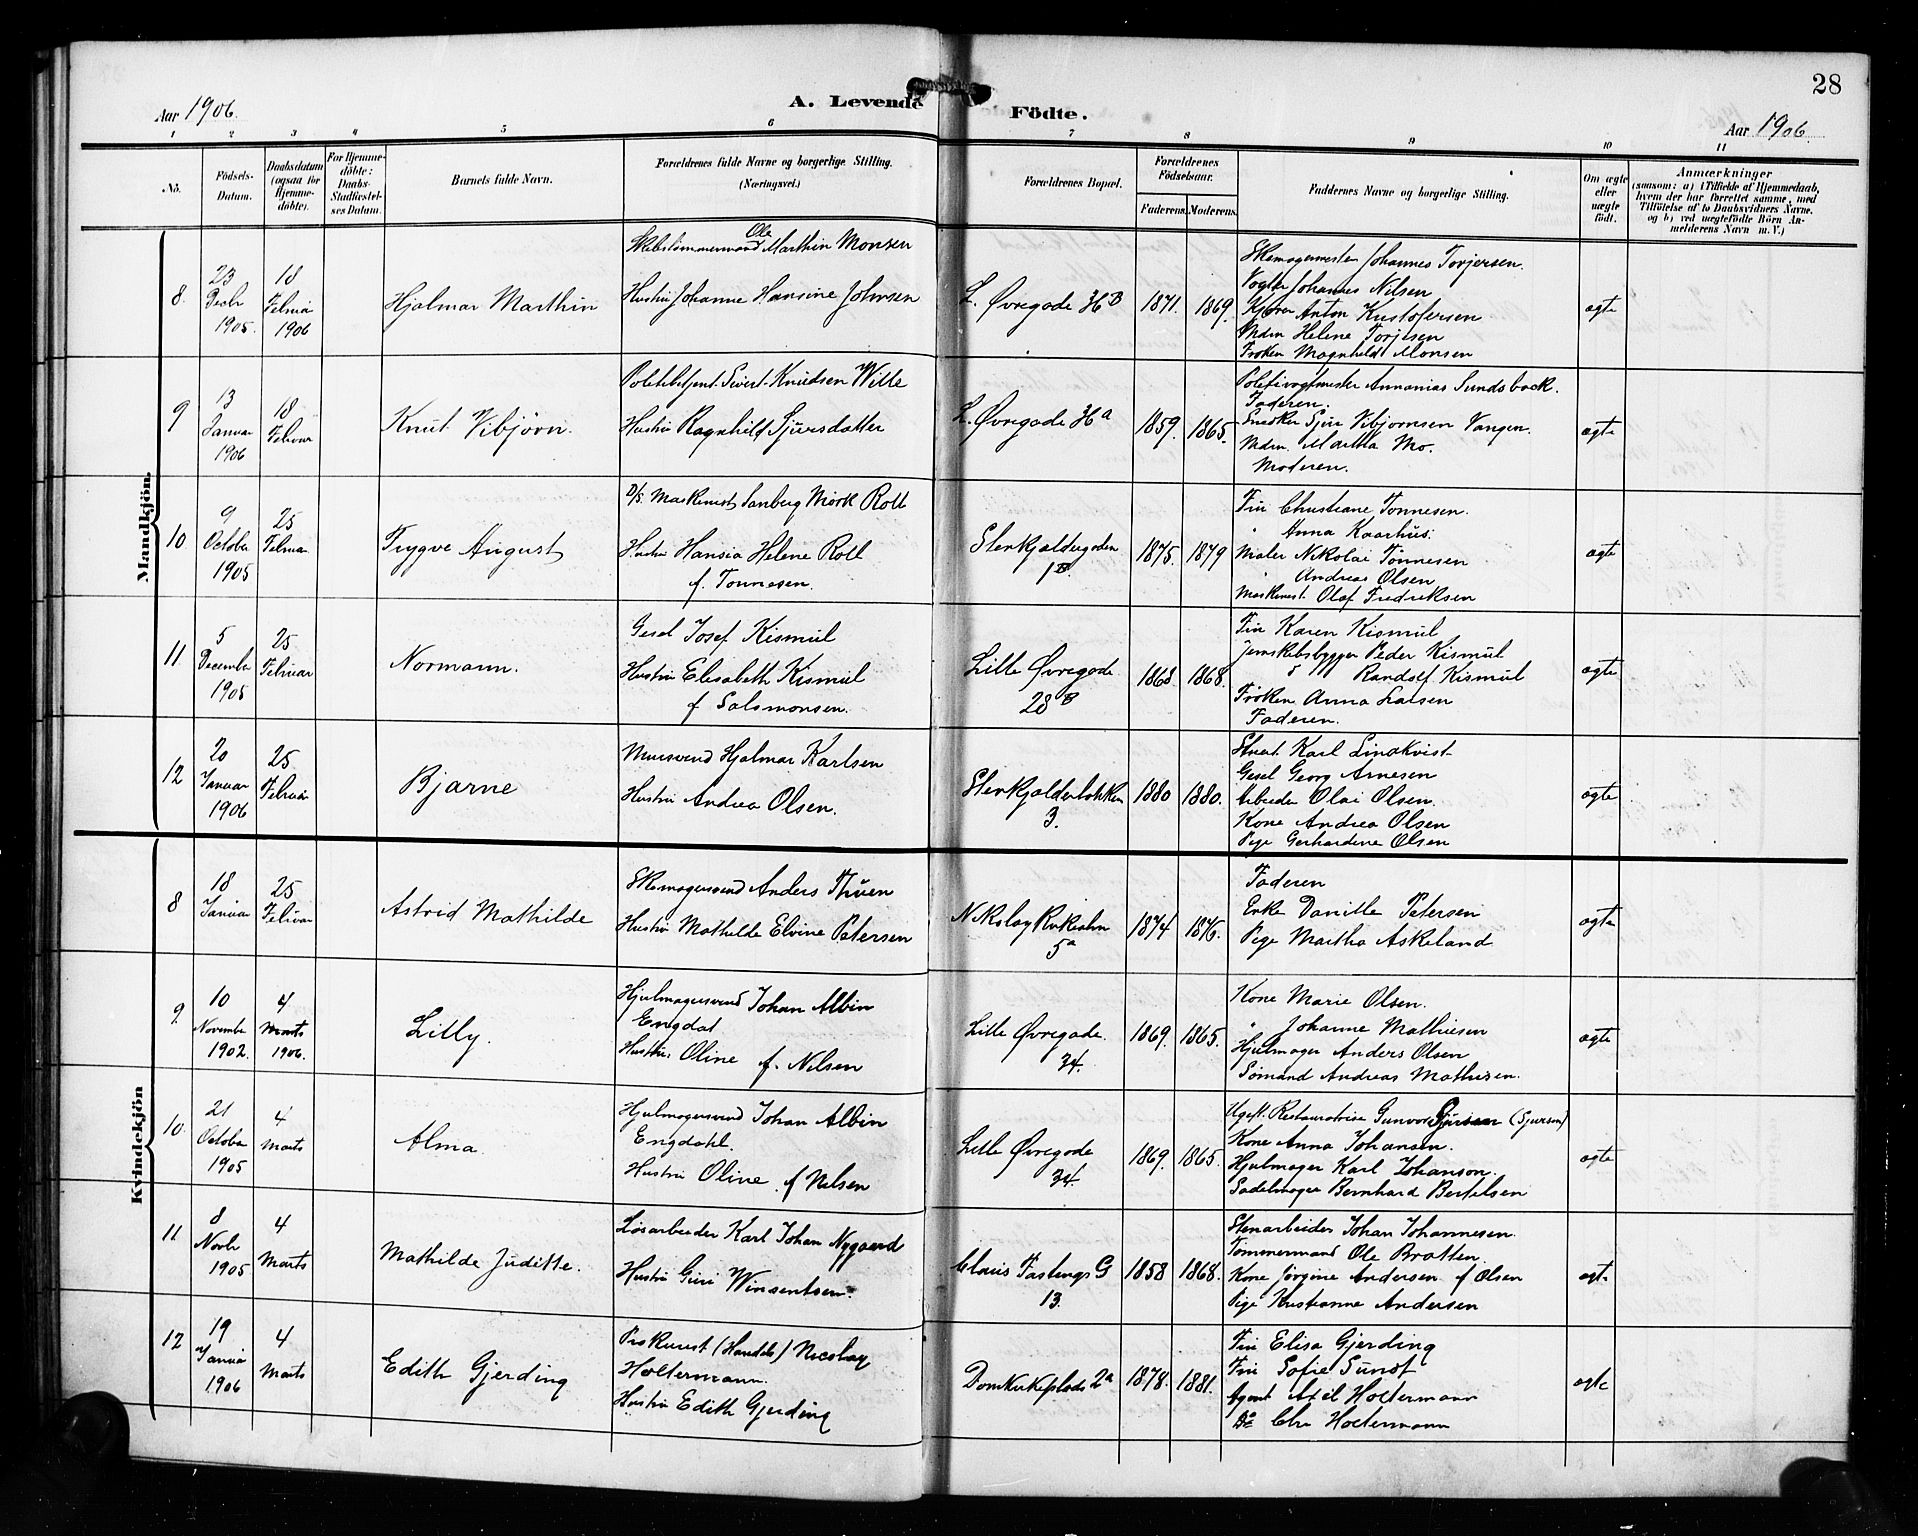 28
Aar 1906.
A. Levende Födte.
Aar 1906.
1 2 3 4 5 6 7 8 9 10 11
No.
Födsels-Datum.
Daabsdatum (ogsaa for Hjemme-döbte).
For Hjemme-döbte: Daabs-Stadfæstel-ses Datum.
Barnets fulde Navn.
Forældrenes fulde Navne og borgerlige Stilling. (Næringsvei.)
Forældrenes Bopæl.
Forældrenes Födselsaar.
Faderens. Moderens.
Faddernes Navne og borgerlige Stilling.
Om ægte eller uægte födt.
Anmærkninger
(saasom: a) i Tilfælde af Hjemmedaab,
hvem der har forrettet samme, med
Tilföielse af to Daabsvidners Navne.
og b) ved uægtefödte Börn An-
melderens Navn m. V.)
Mandkjön.
8.
23 Decbr 1905.
18 Februar 1906
Hjalmar Marthin
Skibstømmermand Ole Marthin Monsen
Hustru Johanne Hansine Johnsen
L. Øvregade 36 B
1871. 1869.
Skomagermester Johannes Torjersen.
Vogter Johannes Nilsen
Kjører Anton Kristofersen
Mdm Helene Torjesen
Frøken Magnhild Monsen
ægte
9
13 Januar 1906
18 Februar
Knut Vibjørn.
Politibetjent Sivert Knudsen Wille
Hustru Ragnhild Sjursdatter
L. Øvregade 36 a
1859. 1865.
Politivagtmester Annanias Sundsback.
Faderen.
Snedker Sjur Vibjørnsen Vangen.
Mdm. Martha Mo.
Moderen.
ægte
10.
9 October 1905
25 Februar
Trygve August
D/S. Maskinist Sanberg Mørk Roll
Hustru Hansia Helene Roll
f. Tønnesen.
Stenkjeldergaden 1 B.
1875. 1879
Fru Christiane Tønnesen.
" Anna Kaarhus.
Maler Nikolai Tønnesen
" Andreas Olsen
Maskinist. Olaf Fredriksen
ægte
11
5 December 1905
25 Februar
Normann.
Gesel Josef Kismul
Hustru Elisabeth Kismul
f Salomonsen.
Lille Øvregade 28 B
1868 1868.
Fru Karen Kismul
Jernskibsbygger Peder Kismul
" Randulf Kismul
Frøken Anna Larsen
Faderen.
ægte
12
20 Januar 1906
25 Februar
Bjarne
Mursvend Hjalmar Karlsen
Hustru Andrea Olsen.
Stenkjelderbakken 3.
1880 1880.
Stuert Karl Lindkvist
Gesel Georg Arnesen
Arbeider Olai Olsen.
Kone Andrea Olsen
Pige Gerhardine Olsen
ægte
Kvindekjön
8
18 Januar
25 Februar
Astrid Mathilde
Skomagersvend Anders Thuen
Hustru Mathilde Elvine Petersen
Nikolay Kirkealm 5 a
1874 1876.
Faderen
Enke Danille Petersen
Pige Martha Askeland
ægte
9
10 November 1902.
4 Marts 1906.
Lilly.
Hjulmagersvend Johan Albin
Engdal
Hustru Oline f. Nilsen
Lille Øvregade. 34.
1869. 1865.
Kone Marie Olsen.
" Johanne Mathiesen
Hjulmager Anders Olsen
Sømand Andreas Mathisen.
ægte
10.
21 October 1905
4 Marts
Alma.
Hjulmagersvend Johan Albin
Engdahl.
Hustru Oline f Nilsen
Lille Øvregade 34.
1869. 1865.
Ugift. Restauratrise Gunvor (Sjursen)
Kone Anna Johansen.
Hjulmager Karl Johanson.
Sadelmager Bernhard Bertelsen
ægte
11
8 Novbr 1905
4 Marts
Mathilde Juditte.
Løsarbeider Karl Johan Nygaard
Hustru Guri Winsentsen.
Claus Fastings G 13.
1858 1868.
Stenarbeider Johan Johannesen.
Tømmermand Ole Bratten.
Kone Jørgine Andersen f Olsen
Pige Kristianne Andersen
ægte
12
19 Januar 1906
4 Marts
Edith Gjerding
Prokurist (Handels) Nicolay
Holtermann.
Hustru Edith Gjerding
Domkirkeplads 2 a
1878. 1881.
Fru Elisa Gjerding
Fru Sofie Sundt
Agent Axel Holtermann
Do Chr Holtermann
ægte